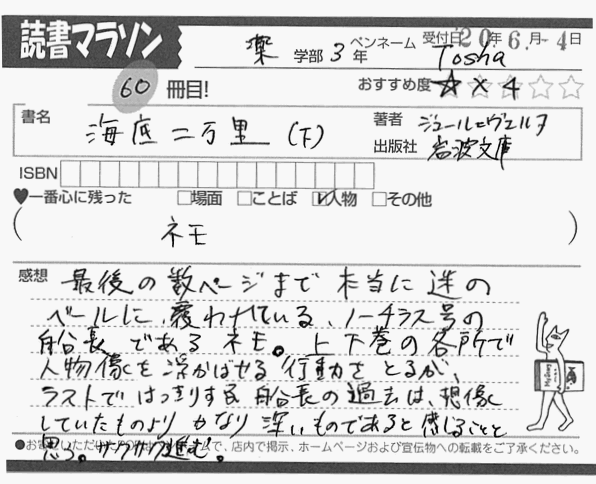 読書マラソン
薬 学部 3 年 ペンネーム Tosha 受付日 20年 6月 4日
60 冊目! おすすめ度 ★×4
書名 海底二万里 (下) 著者 ジュール=ヴェルヌ
出版社 岩波文庫
ISBN
♥一番心に残った □場面 □ことば ☑人物 □その他
( ネモ )
感想 最後の数ページまで本当に迷の
ベールに覆われている、ノーチラス号の
船長であるネモ。上下巻の各所で
人物像を浮かばせる行動をとるが、
ラストではっきりする船長の過去は、想像
していたものよりかなり深いものであると感じることと
思う。サクサク進む。
●お客 いただいた で、店内で掲示、ホームページおよび宣伝物への転載をご了承ください。